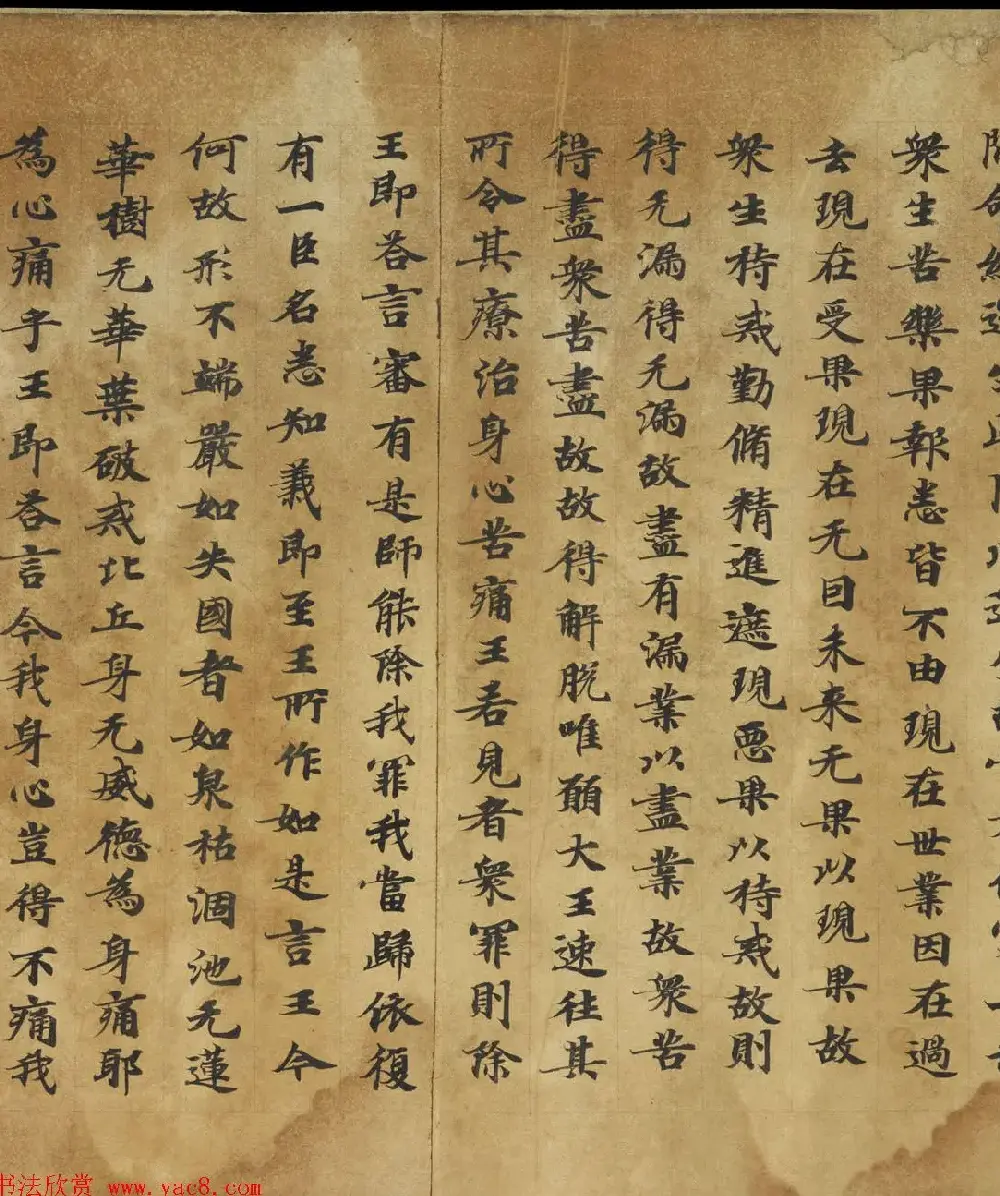 衆生苦樂果報悉皆不由現在世業因在過
去現在受果現在无因未来无果以現果故
衆生持戒勤脩精進遮現惡果以持戒故則
得无漏得无漏故盡有漏業以盡業故衆苦
得盡衆苦盡故故得解脱唯願大王速往其
所令其療治身心苦痛王若見者衆罪則除
王即荅言審有是師能除我罪我當歸依復
有一臣名悉知義即至王所作如是言王今
何故形不端嚴如失國者如泉枯涸池无蓮
華樹无華葉破戒比丘身无威德為身痛耶
為心痛乎王即荅言今我身心豈得不痛我
书法欣赏 www.yac8.com